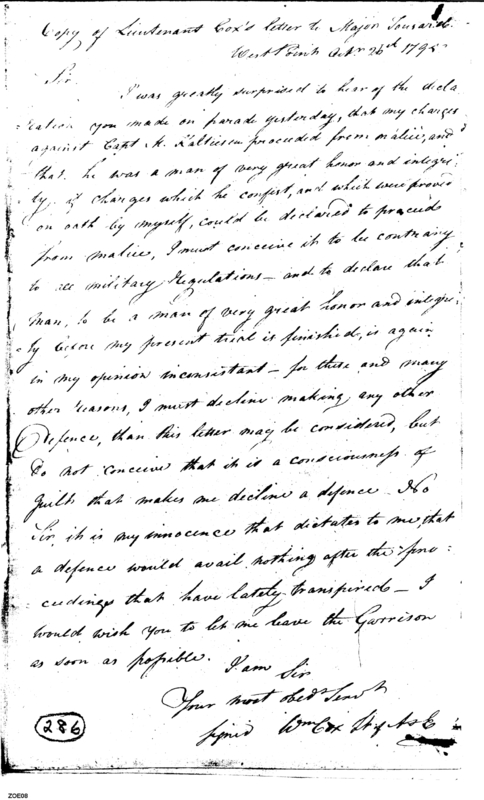 Copy of Lieutenant Cox's letter to Major Tousard.
West Point Octr 26th 1795
Sir
I was greatly surprised to hear of the decla
ration you made on parade yesterday, that my charges
against Capt. K. proceeded from malice, and
that he was a man of very great honor and integri-
ty. if charges which he confest, and which were proved
on oath by myself, could be declared to proceed
from malice, I must conceive it to be contrary
to all military Regulations — and to declare that
Man, to be a man of very great honor and integri-
ty before my present trial is finished, is again
in my opinion inconsistant — for these and many
other reasons, I must decline making any other
Defence, than this letter may be considered, but
Do not conceive that it is a consciousness of
guilt that makes me decline a defence — No
Sir, it is my innocence that dictates to me that
a defence would avail nothing after the pro-
ceedings that have lately transpired — I
would wish you to let me leave the Garrison
as soon as possible. I am Sir
Your most Obedt Servt
signed Wm Cox Lt of A & E
286
ZOE08